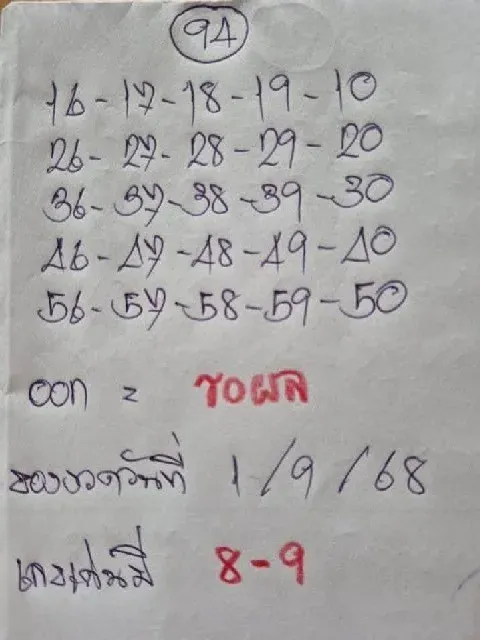 94
16-17-18-19-10
26-27-28-29-20
36-37-38-39-30
46-47-48-49-40
56-57-58-59-50
ออก = ขอผล
ของงวดวันที่ 1/9/68
เลขเด่นมี 8-9